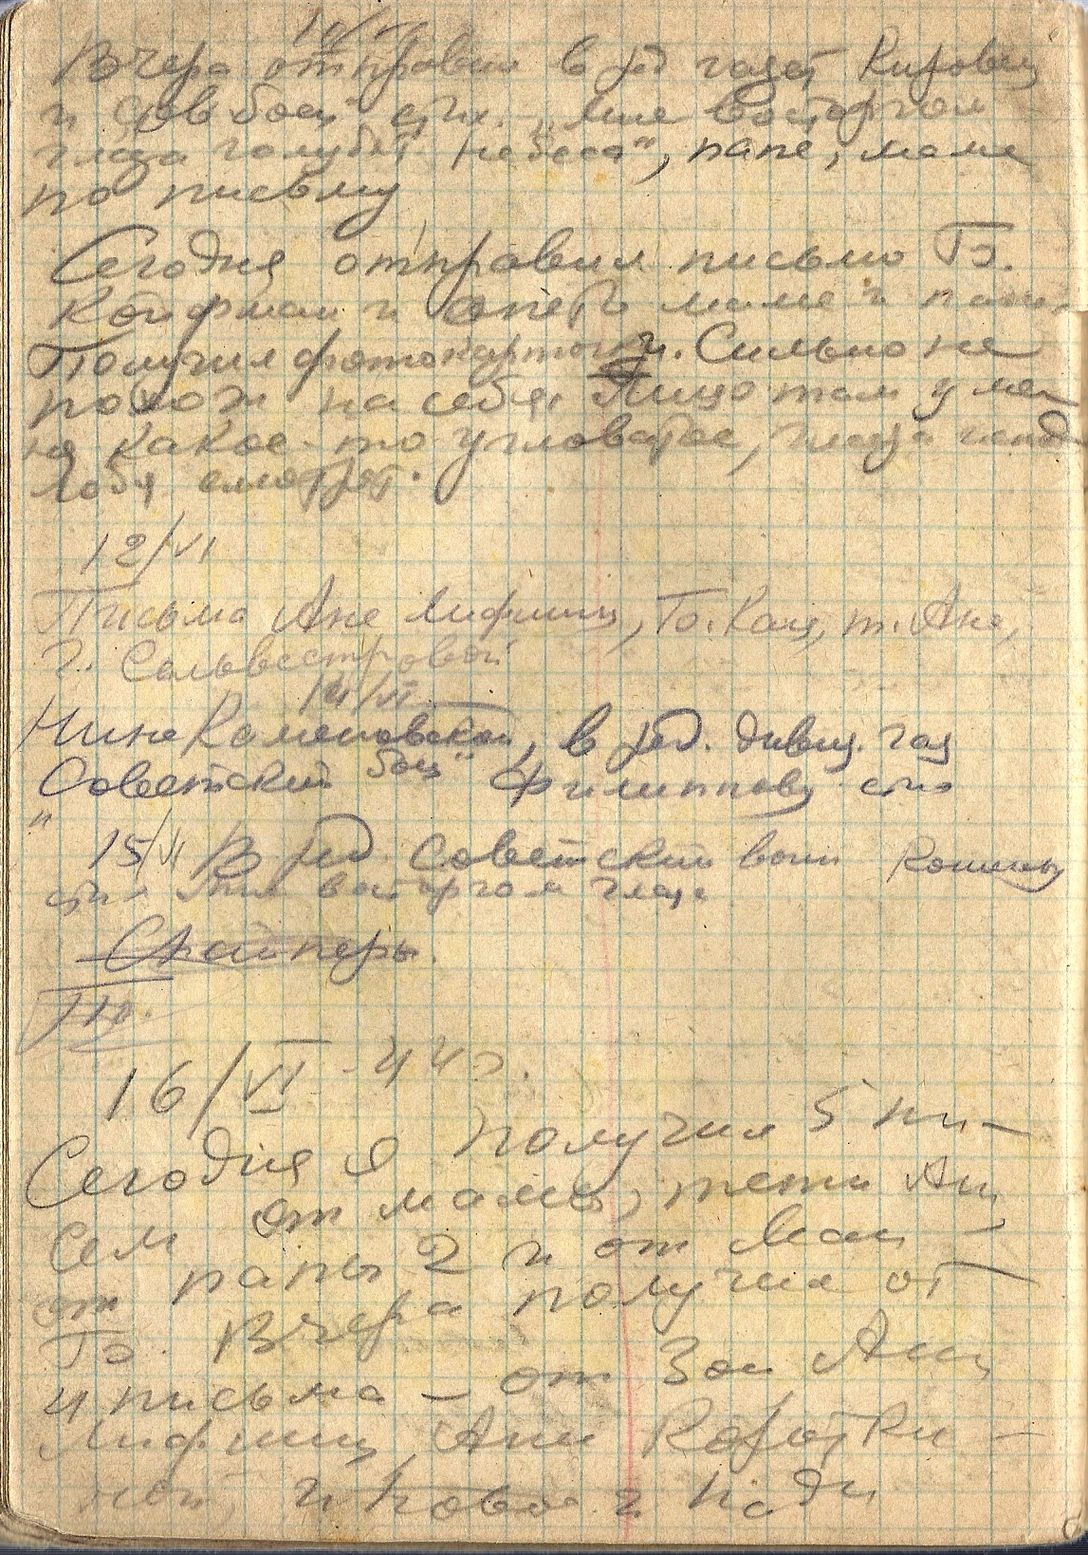 10/VI
Вчера отправил в ред газет Кировец
и Сов боец стих. „Мне восторгом
глаза голубят небеса", папе, маме
по письму
Сегодня отправил письмо Бэ.
Койфман и опять маме и папе.
Получил фотокарточки. Сильно не
похож на себя. Лицо там у ме
ня какое-то угловатое, глаза
лобья смотрят.
12/VI
Письма Ане Лифшиц, Ю. Кац, т. Ане,
Г. Сельвестровой
14/VI
Нине Каменовской, в ред. дивиз. газ
Советский боец" Филиппову стих
"
15/VI В ред. Советский воин
стих Мне восторгом глаза
Снайперы.
16/VI - 44 г.
Сегодня я получил 5 пи-
сем от мамы, тети Ани,
от папы 2 и от
Бэ. Вчера получил от
4 письма - от Зои Ани
Лифшиц, Ани Коротки-
ной, и Нади